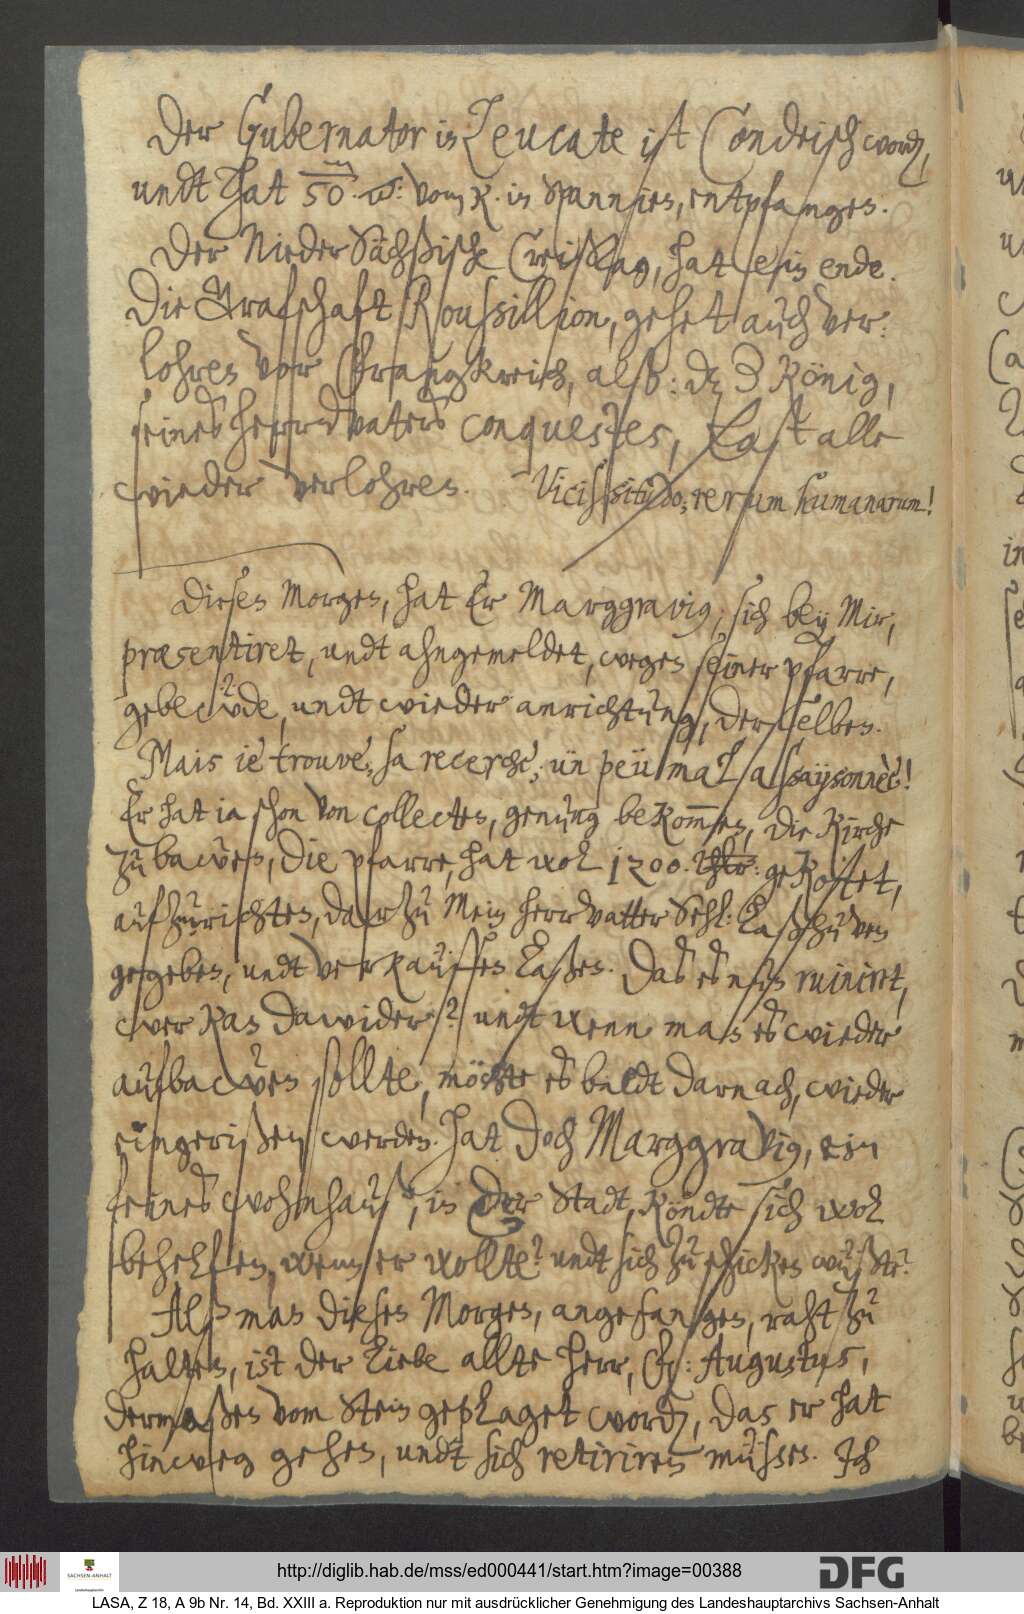 Der Gubernator in Leucate ist Condeisch word,
undt hat 50 m w: vom K. in Spannien, entpfangen.
Der NiederSächßische Creißtag, hat sein ende.
Die Grafschaft Roussillion, gehet auch ver:
lohren vor Franckreich, alß: dz 3 König,
seines herrnvaters conquestes, Fast alle
wieder verlohren. Vicissitudo, rerum humanarum!
Diesen Morgen, hat Er Marggravig, sich bey Mir,
præsentiret, undt ahngemeldet, wegen seiner pfarre,
gebewde, undt wieder anrichtung, derselben.
Mais ie trouve, sa recerche, ün peü mal assaysonnèe!
Er hat ia schon von collecten, genung bekom̅en, die Kirche
zu bawen, die pfarre, hat wol 1200 Thlr: gekostet,
aufzurichten, darzu Mein herrvatter Sehl: Laßzuven
gegeben, undt verkauffen laßen. Das es nun ruiniret,
wer kan dawider? undt wenn man es wieder
aufbawen sollte, möchte es baldt darnach, wieder
eingerißen werden. Hat doch Marggravig, ein
feines wohnhauß, in der Stadt, köndte sich wol
behelfen, wenn er wollte? undt sich zu schicken wüßte?
Alß man diesen Morgen, angefangen, raht zu
halten, ist der liebe allte herr, F: Augustus,
dermaßen vom Stein geplaget word, das er hat
hinweg gehen, undt sich retiriren müßen. Ich
http://diglib.hab.de/mss/ed000441/start.htm?image=00388
SACHSEN-ANHALT
Landeshauptarchiv
DFG
LASA, Z 18, A 9b Nr. 14, Bd. XXIII a. Reproduktion nur mit ausdrücklicher Genehmigung des Landeshauptarchivs Sachsen-Anhalt